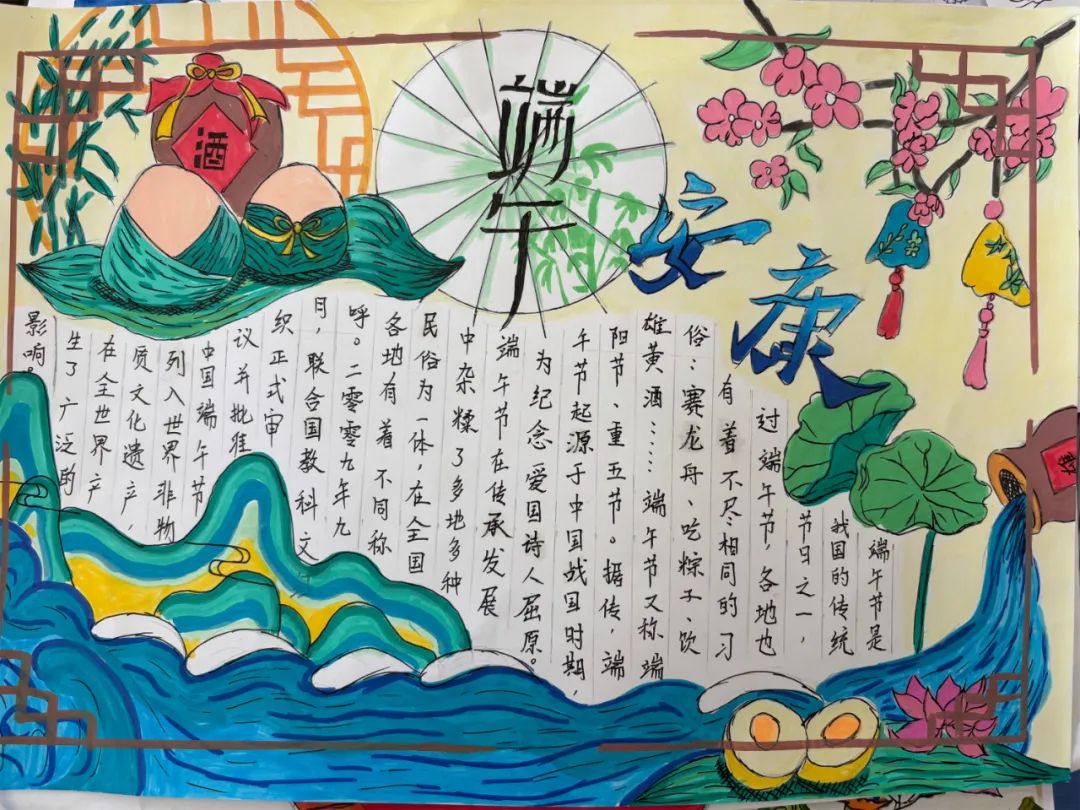 端午
安康
酒
端午节是
我国的传统
节日之一，
过端午节，各地也
有着不尽相同的习
俗：赛龙舟、吃粽子、饮
雄黄酒……端午节又称端
阳节、重五节。据传，端
午节起源于中国战国时期，
为纪念爱国诗人屈原。
端午节在传承发展
中杂糅了多地多种
民俗为一体，在全国
各地有着不同称
呼。二零零九年九
月，联合国教科文
织正式审
议并批准
中国端午节
列入世界非物
质文化遗产，
在全世界产
生了广泛的
影响。